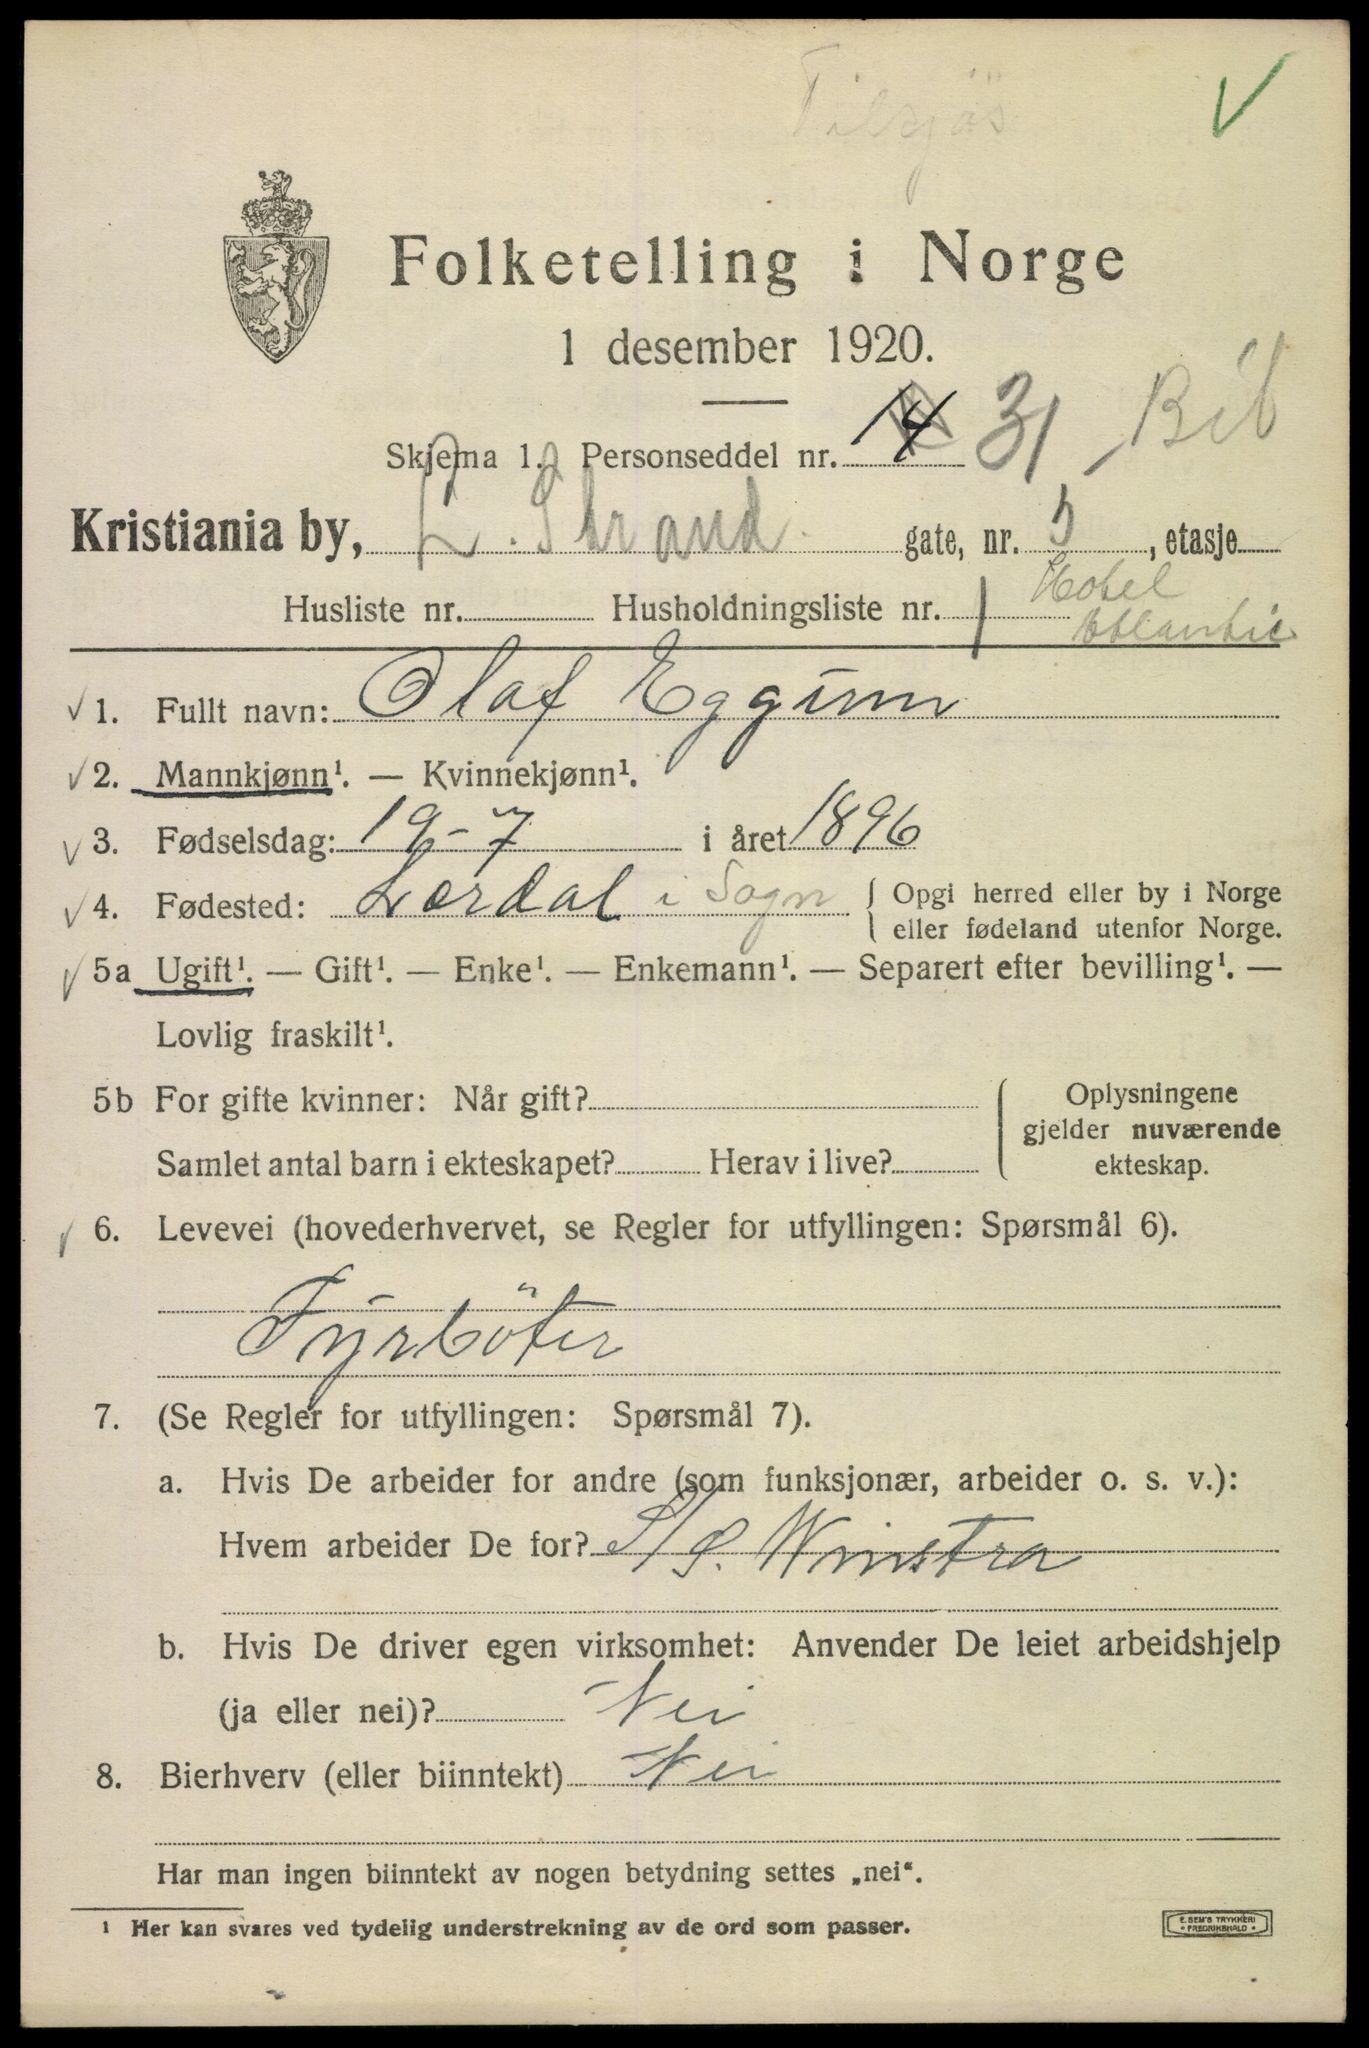 Tilsjøs
Folketelling i Norge
1 desember 1920.
Skjema 1. Personseddel nr. 14 31 Bib
Kristiania by, L. Strand gate, nr. 5, etasje
Husliste nr. Husholdningsliste nr. 1 Hotel
Atlantic
1. Fullt navn: Olaf Eggum
2. Mannkjønn¹. — Kvinnekjønn¹.
3. Fødselsdag: 19-7 i året 1896
4. Fødested: Lærdal i Sogn Opgi herred eller by i Norge
eller fødeland utenfor Norge.
5a Ugift¹. — Gift¹. — Enke¹. — Enkemann¹. — Separert efter bevilling¹. —
Lovlig fraskilt¹.
5b For gifte kvinner: Når gift? Oplysningene
gjelder nuværende
Samlet antal barn i ekteskapet? Herav i live? ekteskap.
6. Levevei (hovederhvervet, se Regler for utfyllingen: Spørsmål 6).
Fyrböter
7. (Se Regler for utfyllingen: Spørsmål 7).
a. Hvis De arbeider for andre (som funksjonær, arbeider o. s. v.):
Hvem arbeider De for? S/S. Winstra
b. Hvis De driver egen virksomhet: Anvender De leiet arbeidshjelp
(ja eller nei)? Nei
8. Bierhverv (eller biinntekt) Nei
Har man ingen biinntekt av nogen betydning settes „nei“.
¹ Her kan svares ved tydelig understrekning av de ord som passer.
E. SEM'S TRYKKERI
FREDRIKSHALD